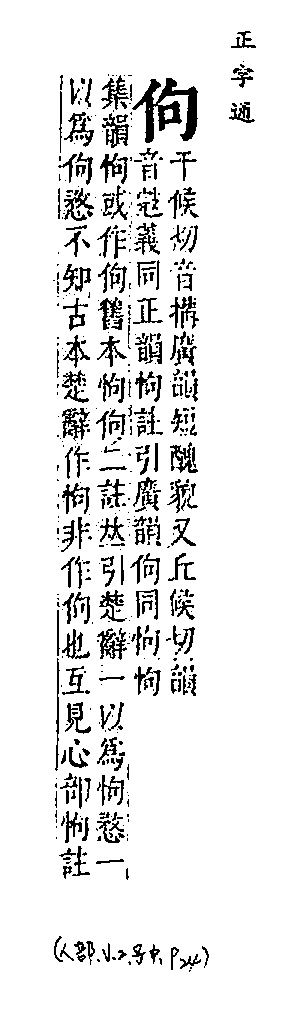 正字通
佝
干候切音搆廣韻短醜貌又丘候切韻
音㓂義同正韻怐註引廣韻佝同怐怐
集韻怐或作佝舊本怐佝二註𠀤引楚辭一以爲怐愗一
以爲佝愗不知古本楚辭作怐非作佝也互見心部怐註